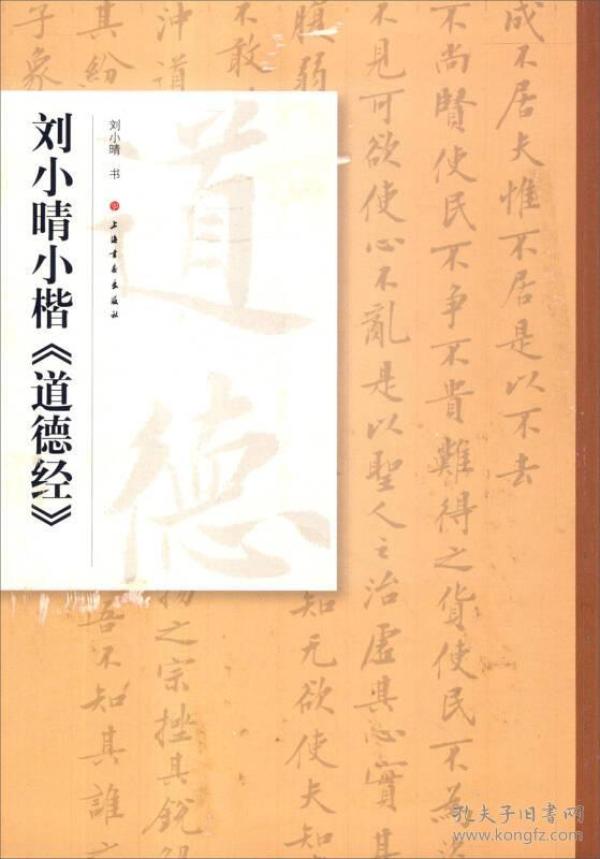 刘小晴小楷《道德经》
刘小晴 书
上海書畫出版社
道德
成不居夫惟不居是以不去
不尚賢使民不争不貴難得之貨使民不為
不見可欲使心不亂是以聖人之治虛其心實其
腹弱
知无欲使夫知
不敢
沖道
物之宗挫其銳
其紛
吾不知其誰
子象
孔夫子旧书网
www.kongfz.com